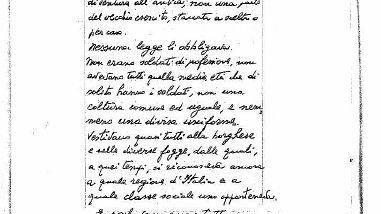 di ventura all'antica, non una parte
del vecchio esercito, staccata a
per caso.
Nessuna legge li obbligava.
Non erano soldati di professione, non
avevano tutti quella media età che di
solito hanno i soldati, non una
coltura comune ed uguale, e nem-
meno una divisa uniforme.
Vestivano quasi tutti alla borghese
e nelle diverse fogge, dalle quali,
a quei tempi, si riconosceva ancora
a quale regione d'Italia e a
quale classe sociale uno apparteneva.